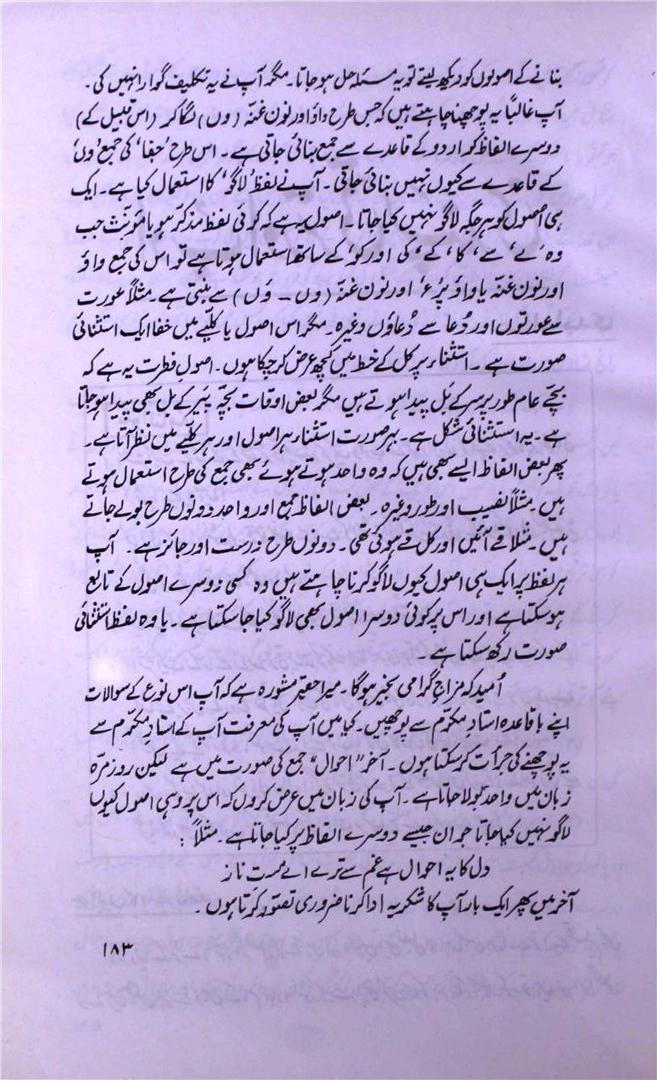 بنانے کے اصولوں کو دیکھ لیتے تو یہ مسئلہ حل ہو جاتا۔ مگر آپ نے یہ تکلیف گوارا نہیں کی۔
آپ غالباً یہ پوچھنا چاہتے ہیں کہ جس طرح واؤ اور نون غنّہ (وں) لگا کر (اس قبیل کے)
دوسرے الفاظ کو اردو کے قاعدے سے جمع بنائی جاتی ہے۔ اس طرح ’خفا‘ کی جمع ’وں‘
کے قاعدے سے کیوں نہیں بنائی جاتی۔ آپ نے لفظ ’لاگو‘ کا استعمال کیا ہے۔ ایک
ہی اصول کو ہر جگہ لاگو نہیں کیا جاتا۔ اصول یہ ہے کہ کوئی لفظ مذکر ہو یا مونث جب
وہ ’نے‘ ’سے‘ ’کا‘ ’کے‘ ’کی‘ اور ’کو‘ کے ساتھ استعمال ہوتا ہے تو اس کی جمع واؤ
اور نون غنّہ یا واؤ پر ’ء‘ اور نون غنّہ (وں ۔ ؤں) سے بنتی ہے۔ مثلاً عورت
سے عورتوں اور دُعا سے دُعاؤں وغیرہ۔ مگر اس اصول یا کلیے میں خفا ایک استثنائی
صورت ہے۔ استثناء پر کل کے خط میں کچھ عرض کر چکا ہوں۔ اصولِ فطرت یہ ہے کہ
بچّے عام طور پر سر کے بَل پیدا ہوتے ہیں مگر بعض اوقات بچّہ پَیر کے بل بھی پیدا ہو جاتا
ہے۔ یہ استثنائی شکل ہے۔ بہر صورت استثناء ہر اصول اور ہر کلیے میں نظر آتا ہے۔
پھر بعض الفاظ ایسے بھی ہیں کہ وہ واحد ہوتے ہوئے بھی جمع کی طرح استعمال ہوتے
ہیں۔ مثلاً نصیب اور طور وغیرہ۔ بعض الفاظ جمع اور واحد دونوں طرح بولے جاتے
ہیں۔ مثلاً قے آئیں اور کل قے ہوئی تھی۔ دونوں طرح درست اور جائز ہے۔ آپ
ہر لفظ پر ایک ہی اصول کیوں لاگو کرنا چاہتے ہیں وہ کسی دوسرے اصول کے تابع
ہو سکتا ہے اور اس پر کوئی دوسرا اصول بھی لاگو کیا جا سکتا ہے۔ یا وہ لفظ استثنائی
صورت رکھ سکتا ہے۔
اُمید کہ مزاجِ گرامی بخیر ہوگا۔ میرا حقیر مشورہ ہے کہ آپ اس نوع کے سوالات
اپنے باقاعدہ استادِ مکرّم سے پوچھیں۔ کیا میں آپ کی معرفت آپ کے استادِ مکرّم سے
یہ پوچھنے کی جرأت کر سکتا ہوں۔ آخر ”احوال“ جمع کی صورت میں ہے لیکن روزمرّہ
زبان میں واحد بولا جاتا ہے۔ آپ کی زبان میں عرض کروں کہ اس پر وہی اصول کیوں
لاگو نہیں کیا جاتا جو ان جیسے دوسرے الفاظ پر کیا جاتا ہے۔ مثلاً :
دل کا یہ احوال ہے غم سے ترے اے مستِ ناز
آخر میں پھر ایک بار آپ کا شکریہ ادا کرنا ضروری تصّور کرتا ہوں۔
۱۸۳